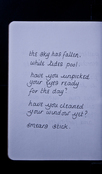 the sky has fallen.
white lidded pool.
have you unpicked
your eyes ready
for the day?
have you cleaned
your window yet?
smears stick.